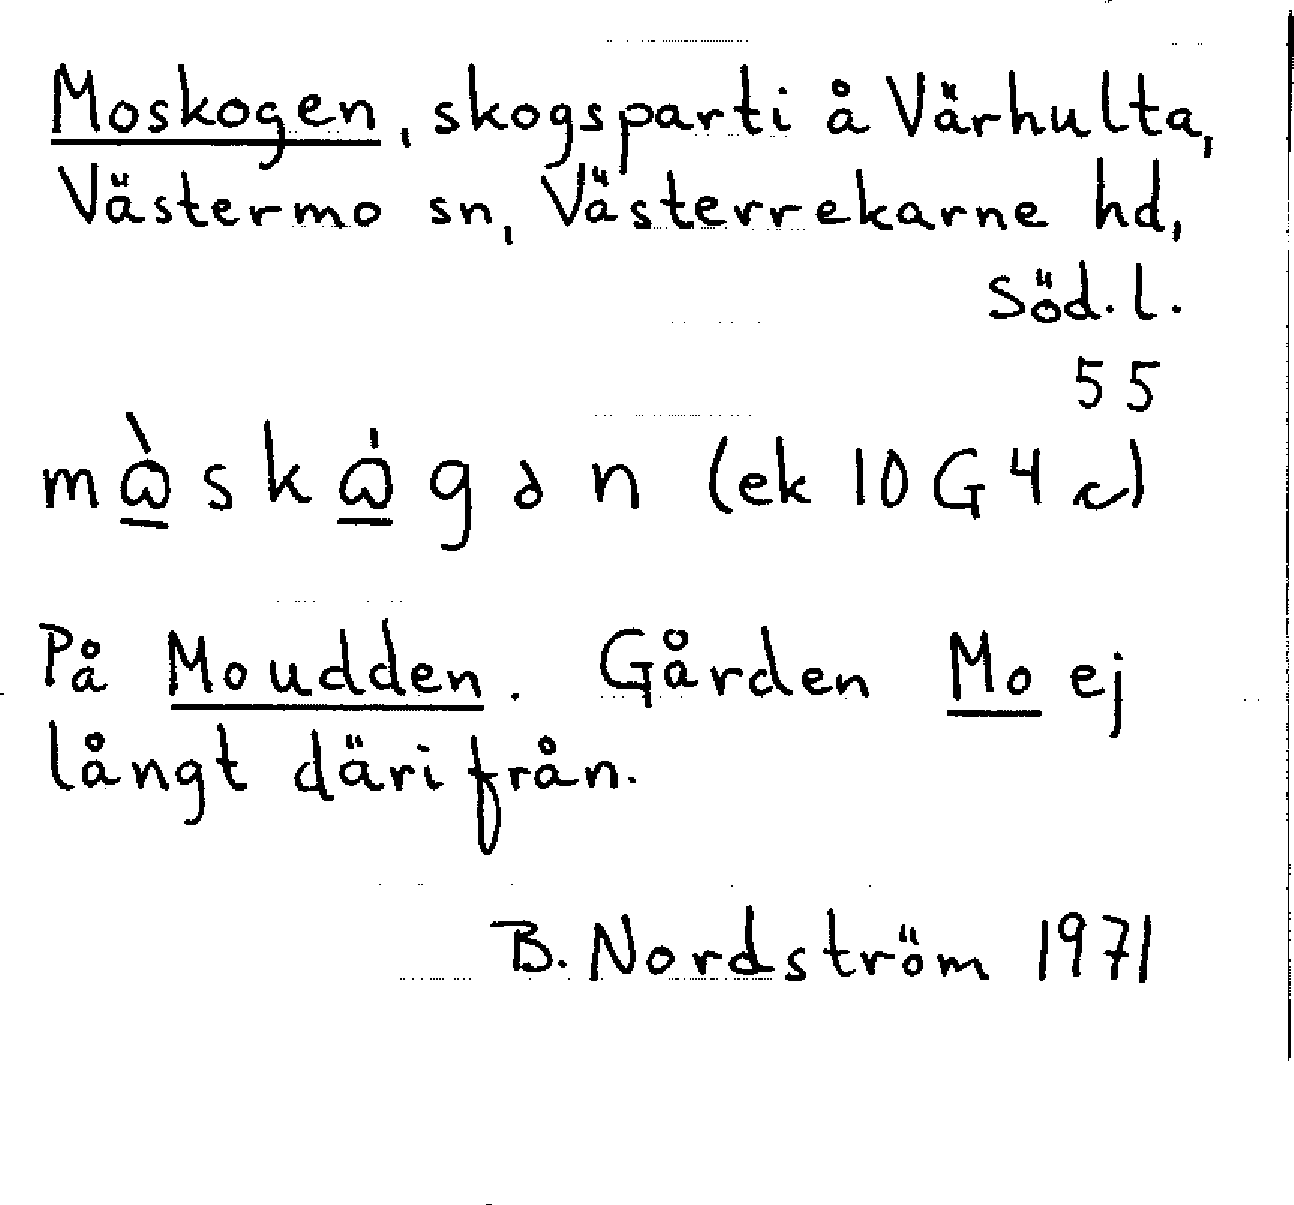 Moskogen, skogsparti å Värhulta,
Västermo sn, Västerrekarne hd,
Söd.l.
55
(ek 10G4c)
På Moudden. Gården Mo ej
långt därifrån.
B. Nordström 1971